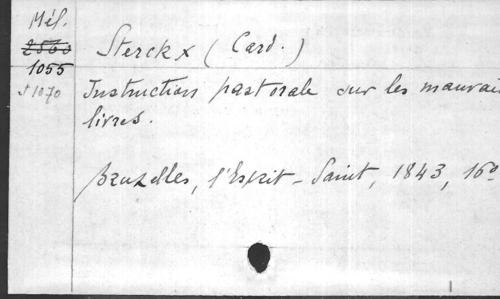 Mél.
2560
1055
Sterckx (Card.)
Instruction pastorale sur les mauvais
livres.
Bruxelles, l'Esprit-Saint, 1843, 16º